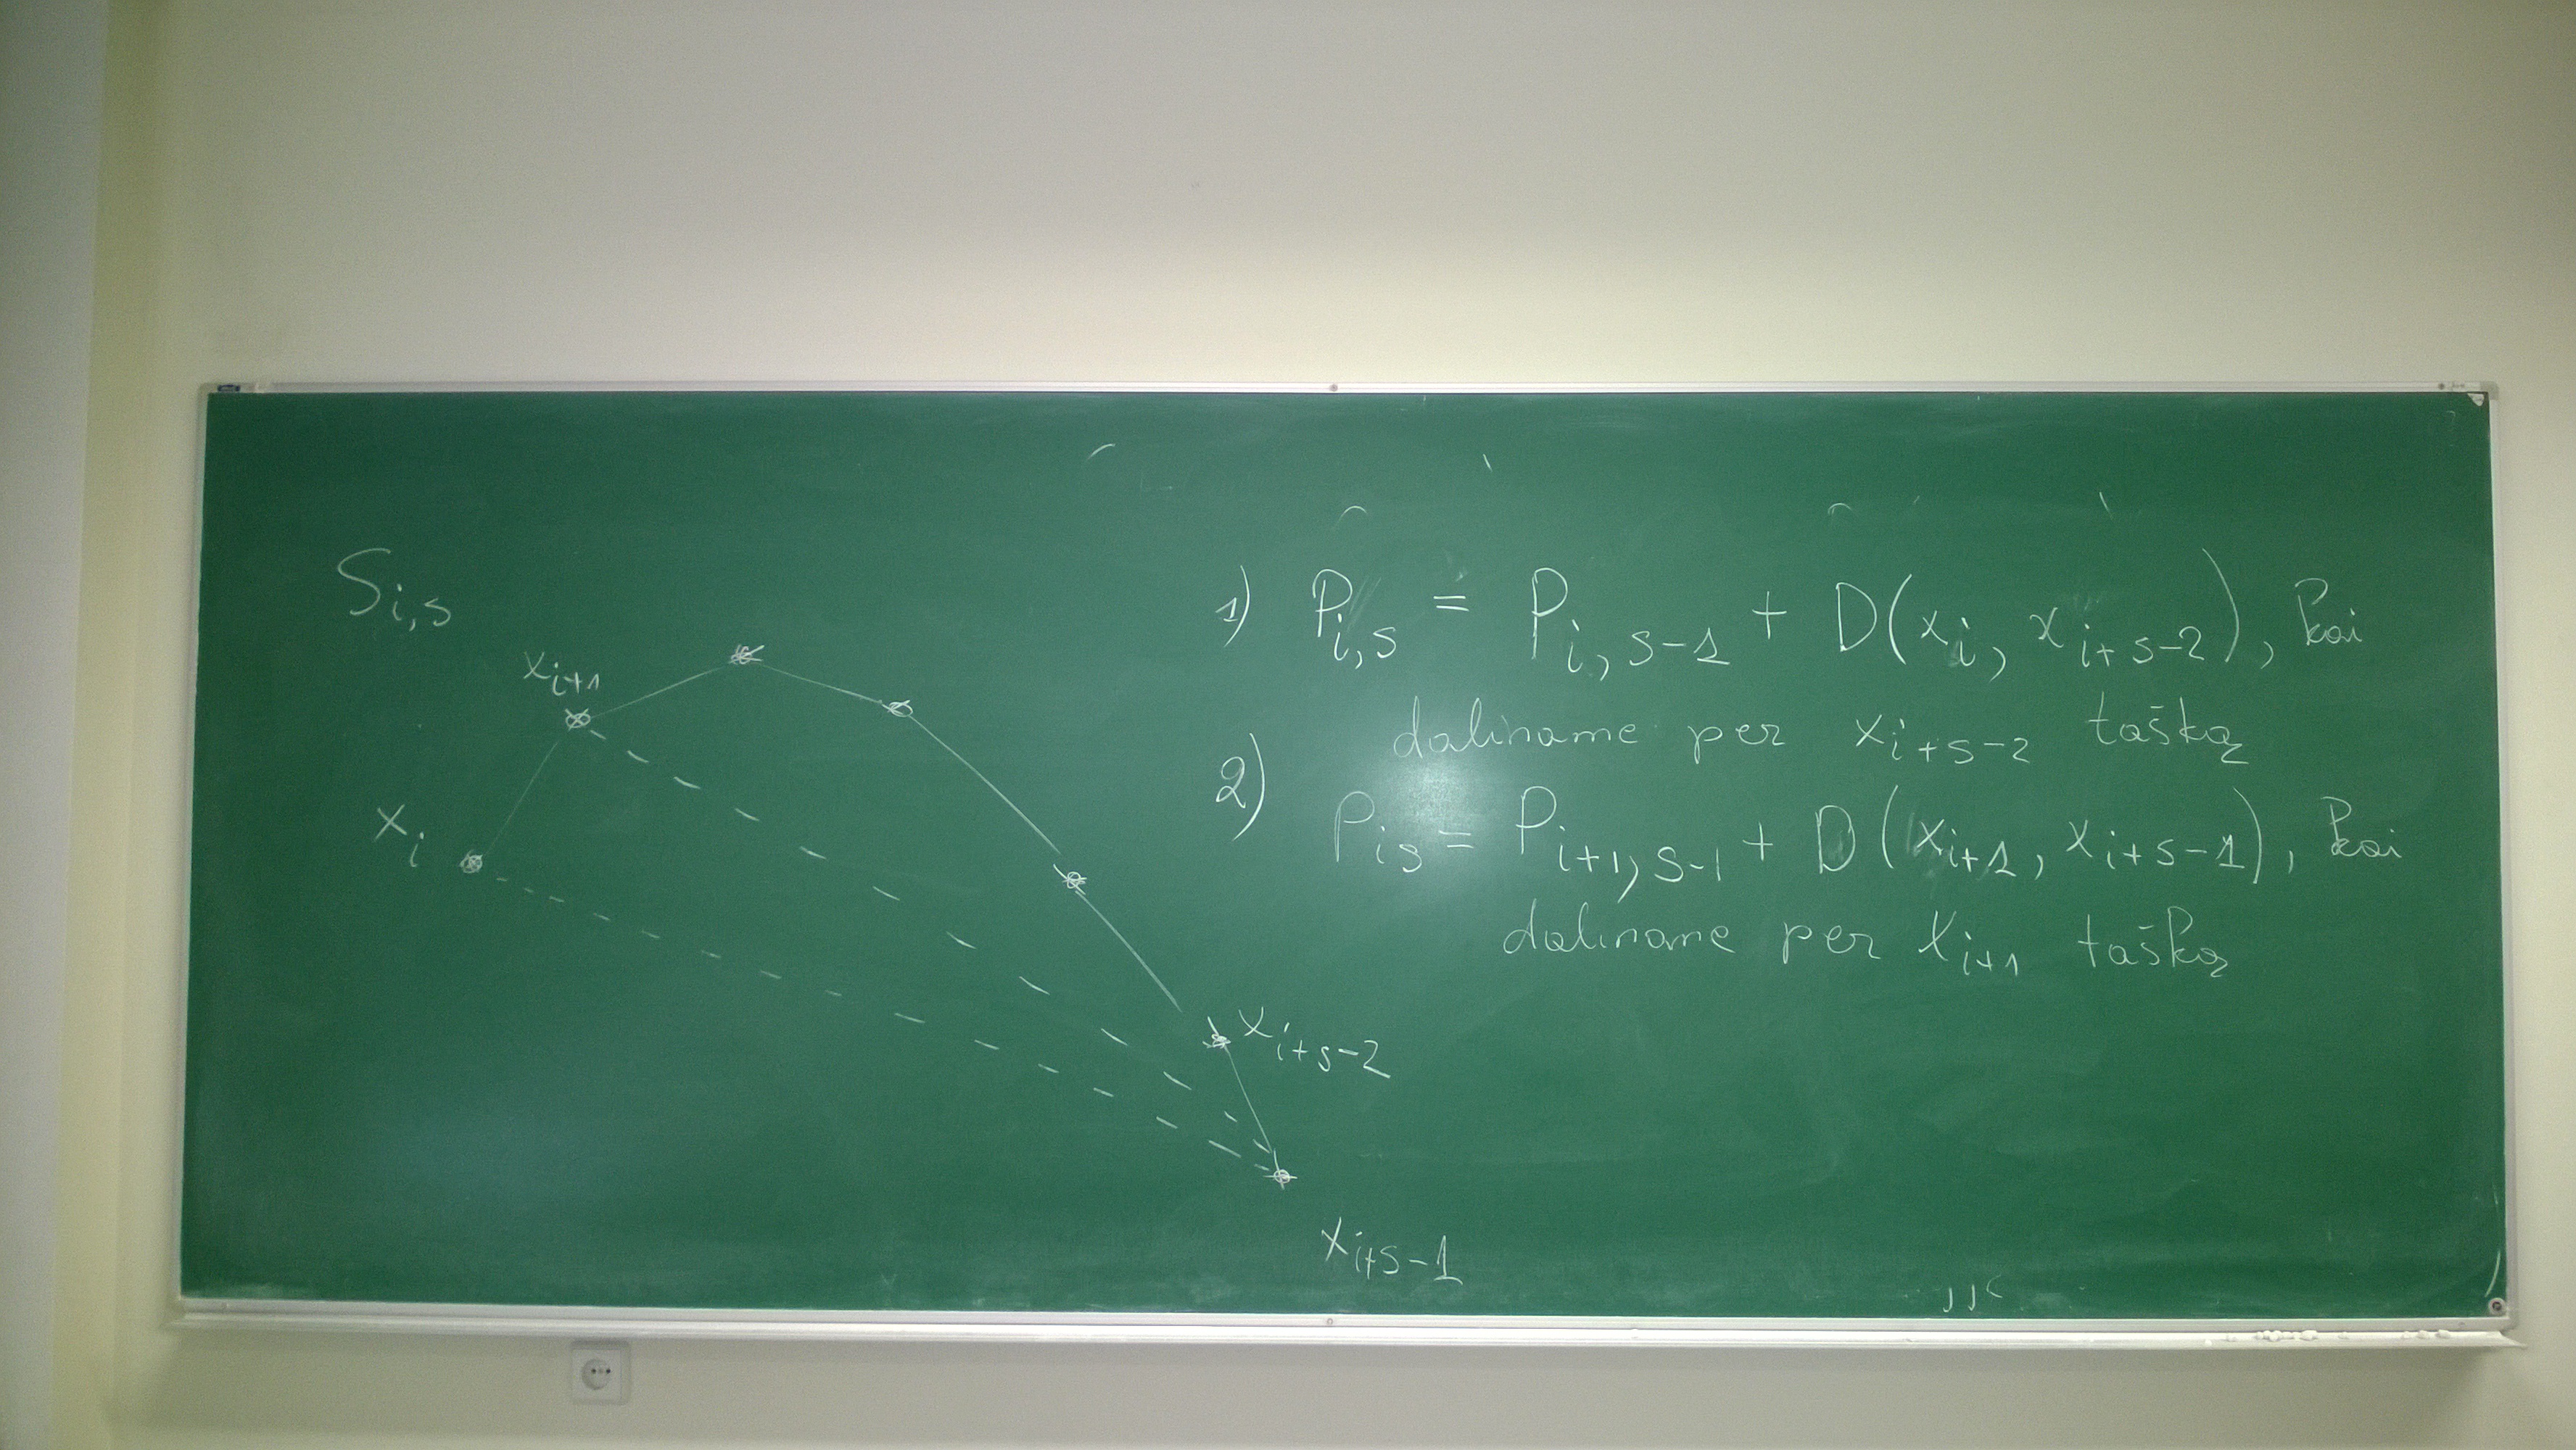 S_{i,s}
x_{i+1}
x_i
x_{i+s-2}
x_{i+s-1}
1) P_{i,s} = P_{i,s-1} + D(x_i, x_{i+s-2}), kai
daliname per x_{i+s-2} tašką
2) P_{is} = P_{i+1,s-1} + D(x_{i+1}, x_{i+s-1}), kai
daliname per x_{i+1} tašką